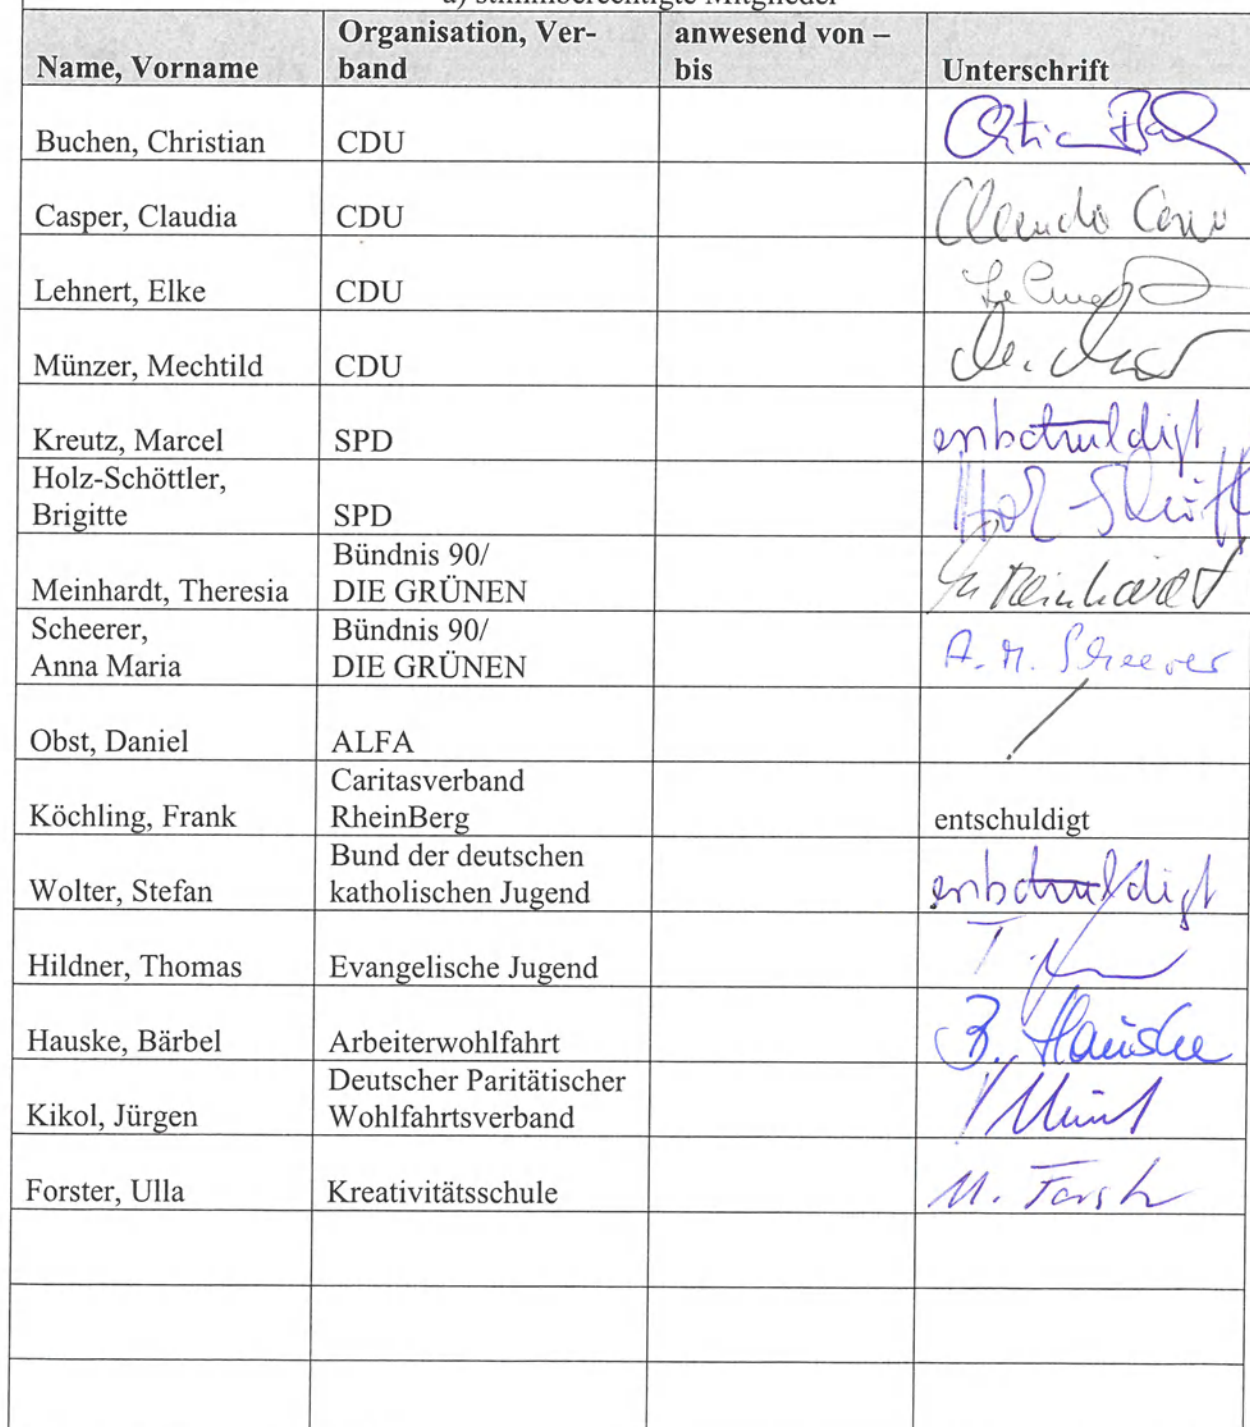 a) stimmberechtigte Mitglieder
Name, Vorname
Organisation, Ver-
band
anwesend von –
bis
Unterschrift
Buchen, Christian
CDU
Casper, Claudia
CDU
Claudia
Lehnert, Elke
CDU
Münzer, Mechtild
CDU
Kreutz, Marcel
SPD
entschuldigt
Holz-Schöttler,
Brigitte
SPD
Meinhardt, Theresia
Bündnis 90/
DIE GRÜNEN
Meinhardt
Scheerer,
Anna Maria
Bündnis 90/
DIE GRÜNEN
A. M. Scheerer
Obst, Daniel
ALFA
Köchling, Frank
Caritasverband
RheinBerg
entschuldigt
Wolter, Stefan
Bund der deutschen
katholischen Jugend
entschuldigt
Hildner, Thomas
Evangelische Jugend
Hauske, Bärbel
Arbeiterwohlfahrt
B. Hauske
Kikol, Jürgen
Deutscher Paritätischer
Wohlfahrtsverband
Forster, Ulla
Kreativitätsschule
U. Forster